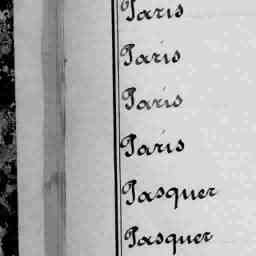 Paris
Paris
Paris
Paris
Pasquer
Pasquer